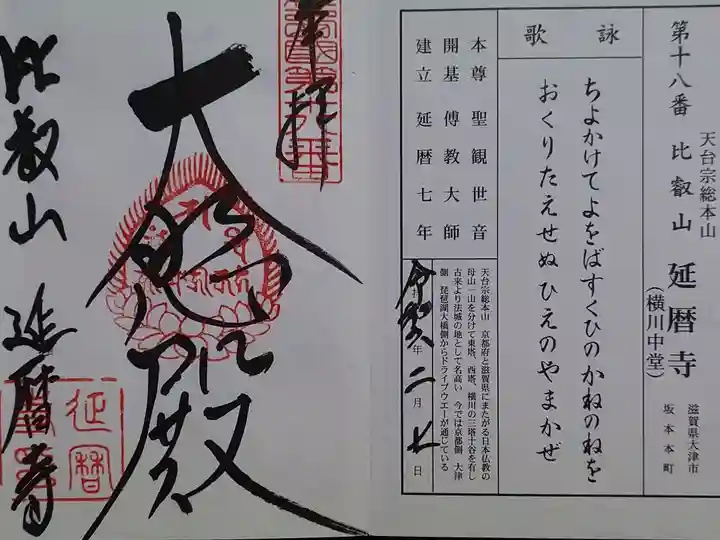 第十八番
天台宗総本山
比叡山 延暦寺
(横川中堂)
滋賀県大津市
坂本本町
詠歌
ちよかけてよをばすくひのかねのねを
おくりたえせぬひえのやまかぜ
本尊 聖観世音
開基 傳教大師
建立 延暦七年
天台宗総本山 京都府と滋賀県にまたがる日本仏教の
母山一山を分けて東塔、西塔、横川の三塔十谷を有し
古来より法城の地として名高い 今では京都側 大津
側 琵琶湖大橋側からドライブウエーが通じている
年 二月 七日
奉拝
大悲殿
比叡山 延暦寺
延暦